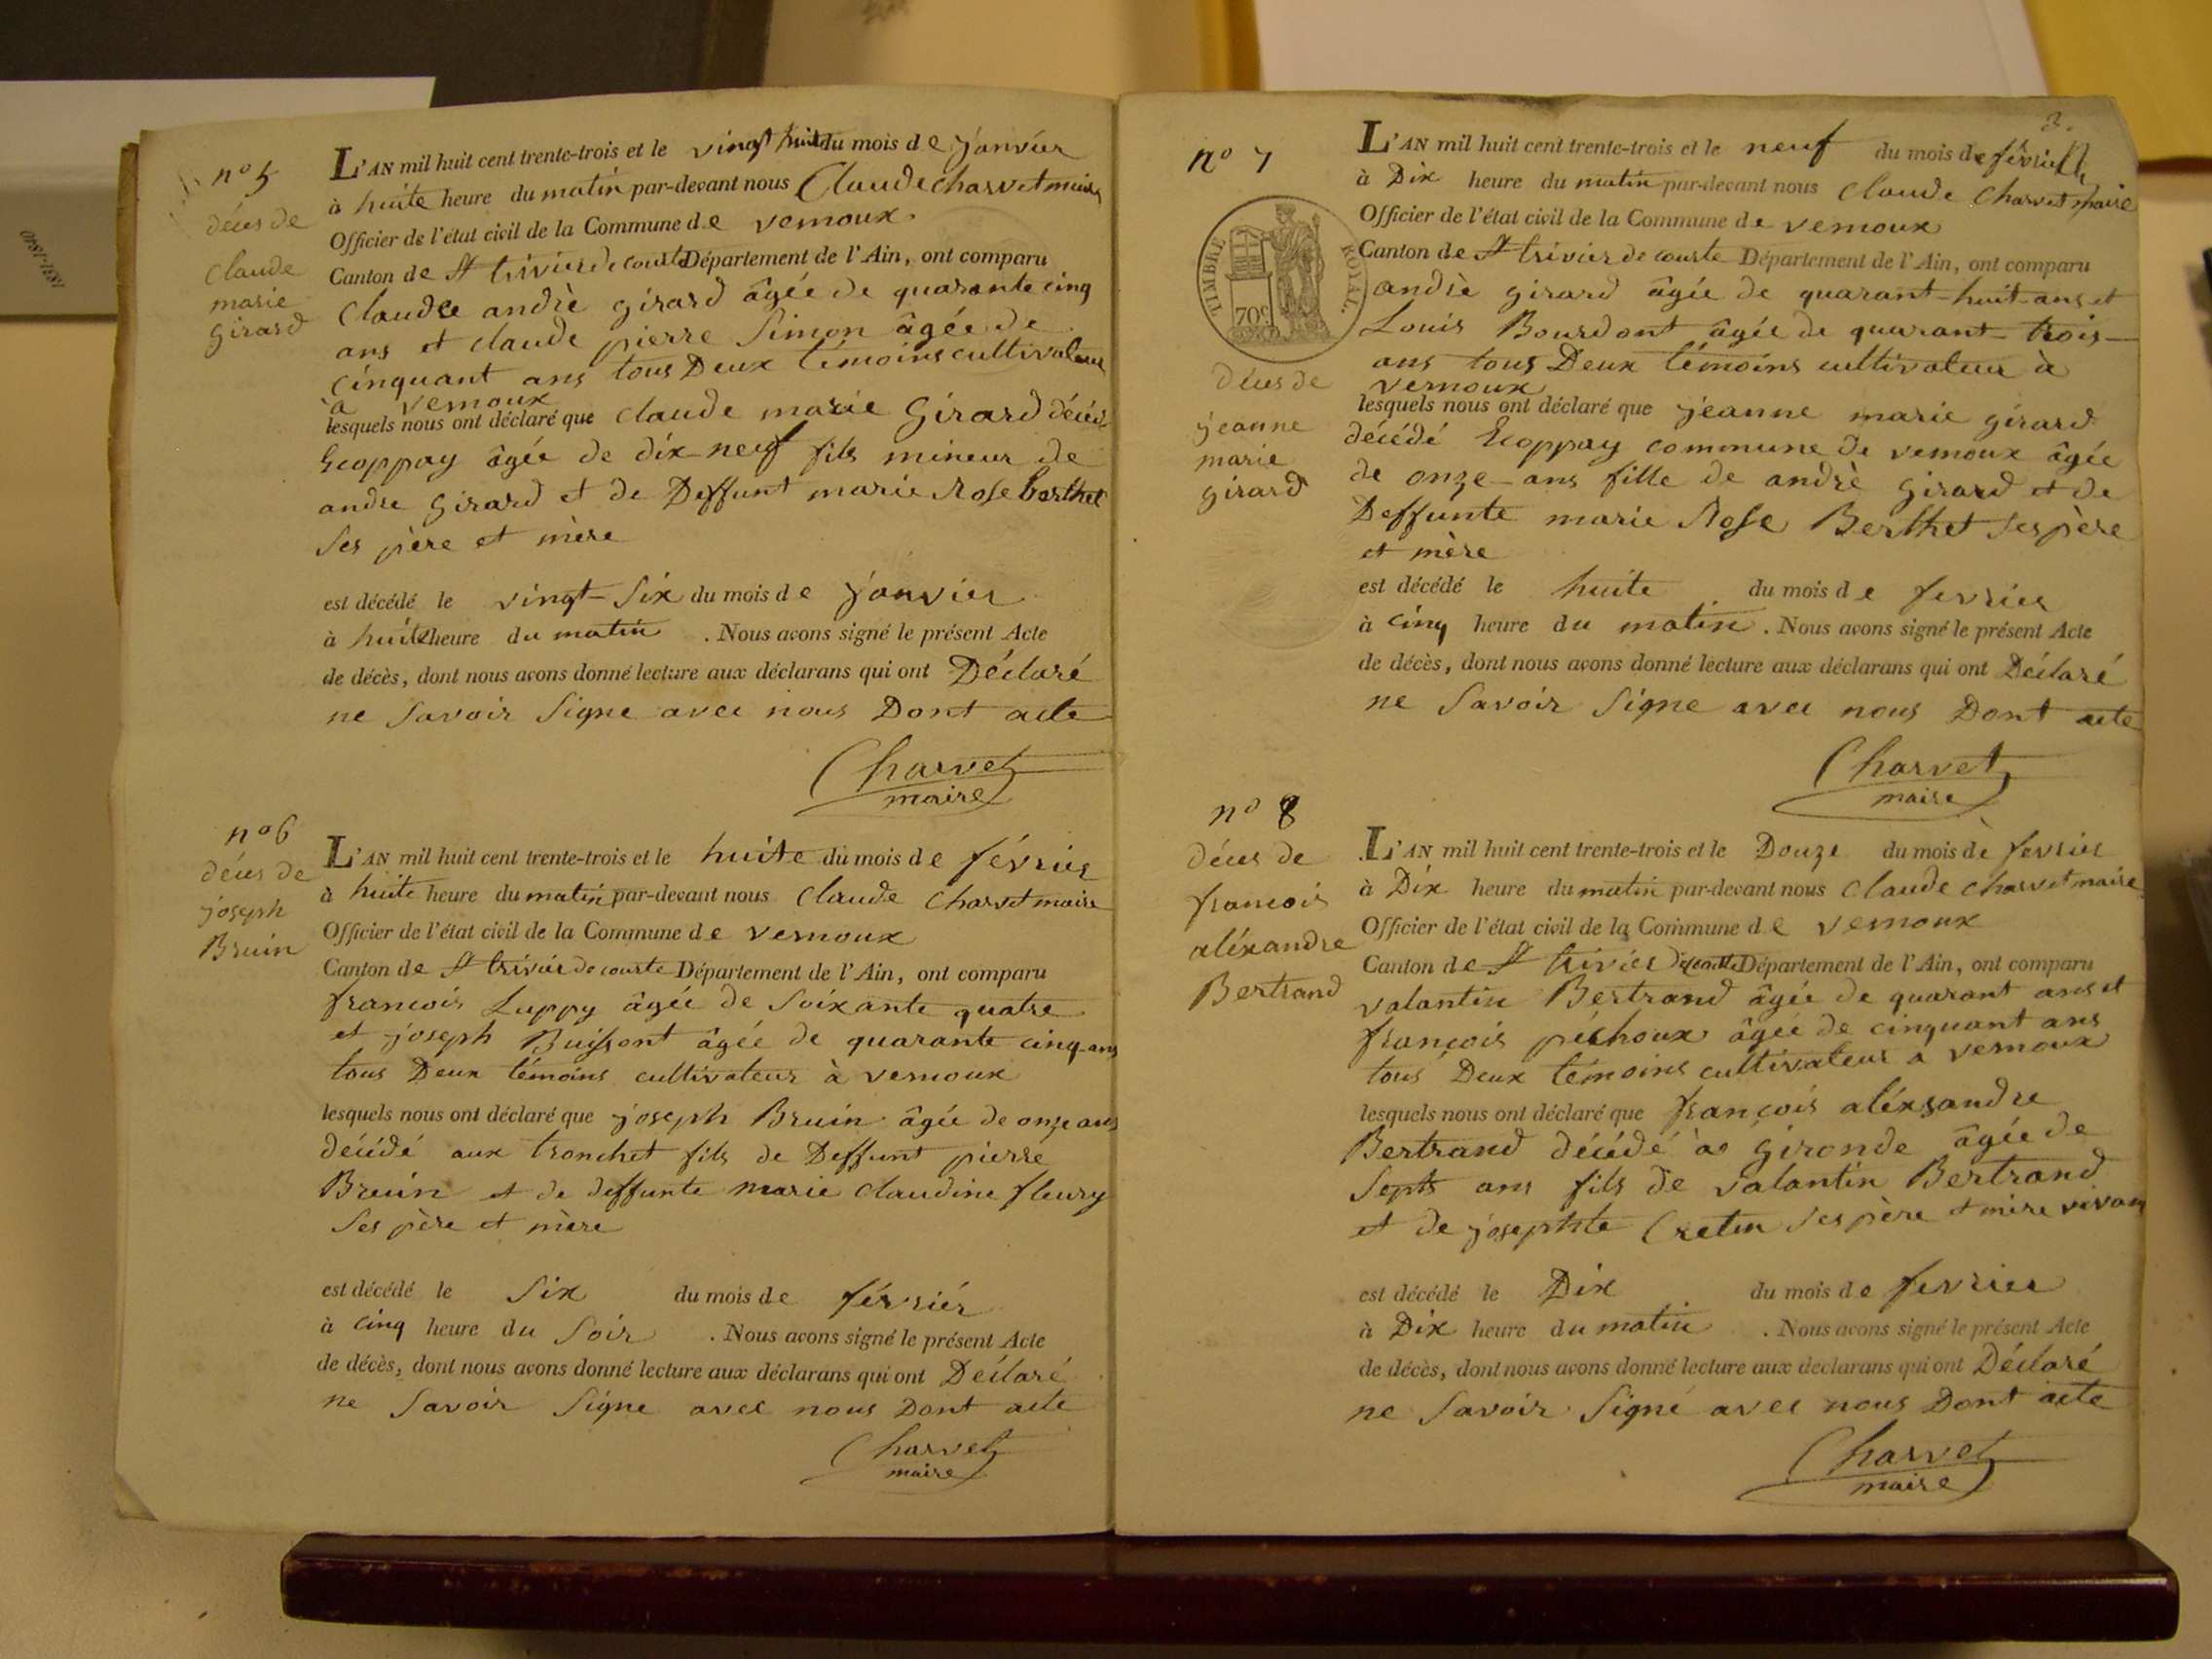 1831-1840
n° 5
décès de
Claude
marie
girard
L'AN mil huit cent trente-trois et le vingt huit du mois de janvier
à huite heure du matin par-devant nous Claude charvet maire
Officier de l'état civil de la Commune de vernoux
Canton de St trivier de courte Département de l'Ain, ont comparu
Claude andrè girard âgée de quarante cinq
ans et claude pierre Simon âgée de
cinquant ans tous Deux témoins cultivateur
à vernoux
lesquels nous ont déclaré que claude marie Girard décédé
Ecoppay âgée de dix-neuf fils mineur de
andre girard et de Deffunt marie Rose berthet
Ses père et mère
est décédé le vingt-Six du mois de janvier
à huite heure du matin . Nous avons signé le présent Acte
de décès, dont nous avons donné lecture aux déclarans qui ont Déclaré
ne Savoir Signe avec nous Dont acte
Charvet
maire
n° 6
décès de
joseph
Bruin
L'AN mil huit cent trente-trois et le huite du mois de février
à huite heure du matin par-devant nous Claude Charvet maire
Officier de l'état civil de la Commune de vernoux
Canton de St trivier de courte Département de l'Ain, ont comparu
francois Luppy âgée de Soixante quatre
et joseph Buissont âgée de quarante cinq ans
tous Deux témoins cultivateur à vernoux
lesquels nous ont déclaré que joseph Bruin âgée de onze ans
décédé aux tronchet fils de Deffunt pierre
Bruin et de deffunte marie Claudine fleury
Ses père et mère
est décédé le Six du mois de février
à cinq heure du Soir . Nous avons signé le présent Acte
de décès, dont nous avons donné lecture aux déclarans qui ont Déclaré
ne Savoir Signe avec nous Dont acte
Charvet
maire
n° 7
TIMBRE ROYAL.
70c
décès de
jeanne
marie
girard
L'AN mil huit cent trente-trois et le neuf du mois de février
à Dix heure du matin par-devant nous Claude Charvet maire
Officier de l'état civil de la Commune de vernoux
Canton de St trivier de courte Département de l'Ain, ont comparu
andrè girard âgée de quarant-huit-ans et
Louis Bourdont âgée de quarant-trois-
ans tous Deux témoins cultivateur à
vernoux
lesquels nous ont déclaré que jeanne marie girard
décédé Ecoppay commune de vernoux âgée
de onze-ans fille de andrè girard et de
Deffunte marie Rose Berthet Ses père
et mère
est décédé le huite du mois de fevrier
à cinq heure du matin . Nous avons signé le présent Acte
de décès, dont nous avons donné lecture aux déclarans qui ont Déclaré
ne Savoir Signe avec nous Dont acte
Charvet
maire
n° 8
décès de
francois
aléxandre
Bertrand
L'AN mil huit cent trente-trois et le Douze du mois de fevrier
à Dix heure du matin par-devant nous Claude Charvet maire
Officier de l'état civil de la Commune de vernoux
Canton de St trivier de courte Département de l'Ain, ont comparu
valantin Bertrand âgée de quarant ans et
françois péchoux âgée de cinquant ans
tous Deux témoins cultivateur a vernoux
lesquels nous ont déclaré que françois aléxsandre
Bertrand décédé à gironde âgée de
Septs ans fils de valantin Bertrand
et de josephte Cretin Ses père et mère vivan
est décédé le Dix du mois de fevrier
à Dix heure du matin . Nous avons signé le présent Acte
de décès, dont nous avons donné lecture aux déclarans qui ont Déclaré
ne Savoir Signé avec nous Dont acte
Charvet
maire